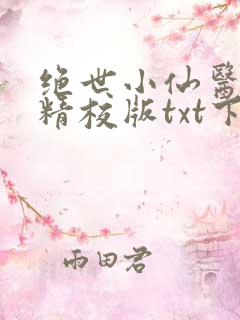 绝世小仙醫
精校版txt下
雨田君